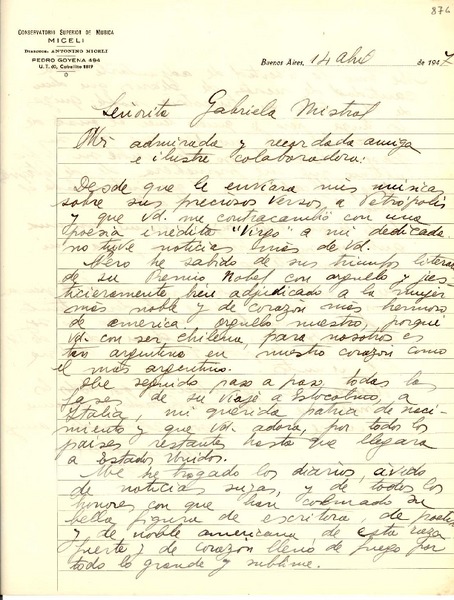 876
CONSERVATORIO SUPERIOR DE MUSICA
MICELI
DIRECTOR: ANTONINO MICELI
PEDRO GOYENA 494
U. T. 60, Caballito 1817
Buenos Aires, 14 abril de 1947
Señorita Gabriela Mistral
Mi admirada y recordada amiga
e ilustre colaboradora:
Desde que le enviara mis músicas
sobre sus preciosos versos, a Petrópolis
y que Vd. me contracambió con una
poesía inédita "Virgo" a mi dedicada
no tuve noticias más de Vd.
Pero he sabido de sus triunfos literarios
de su Premio Nobel con orgullo y jus-
ticieramente bien adjudicado a la mujer
más noble y de corazón más hermoso
de america. orgullo nuestro, porqué
Vd. con ser chilena, para nosotros es
tan argentina en nuestro corazón como
el más argentino.
He seguido paso a paso, todas las
fases de su viaje a Estocolmo, a
Italia, mi querida patria de naci-
miento y que Vd. adora, por todos los
países restantes hasta que llegara
a Estados Unidos.
Me he tragado los diarios, avido
de noticias suyas, y de todos los
honores con que han colmado su
bella figura de escritora, de poetisa
y de noble americana de esta raza
fuerte y de corazón lleno de fuego por
todo lo grande y sublime.